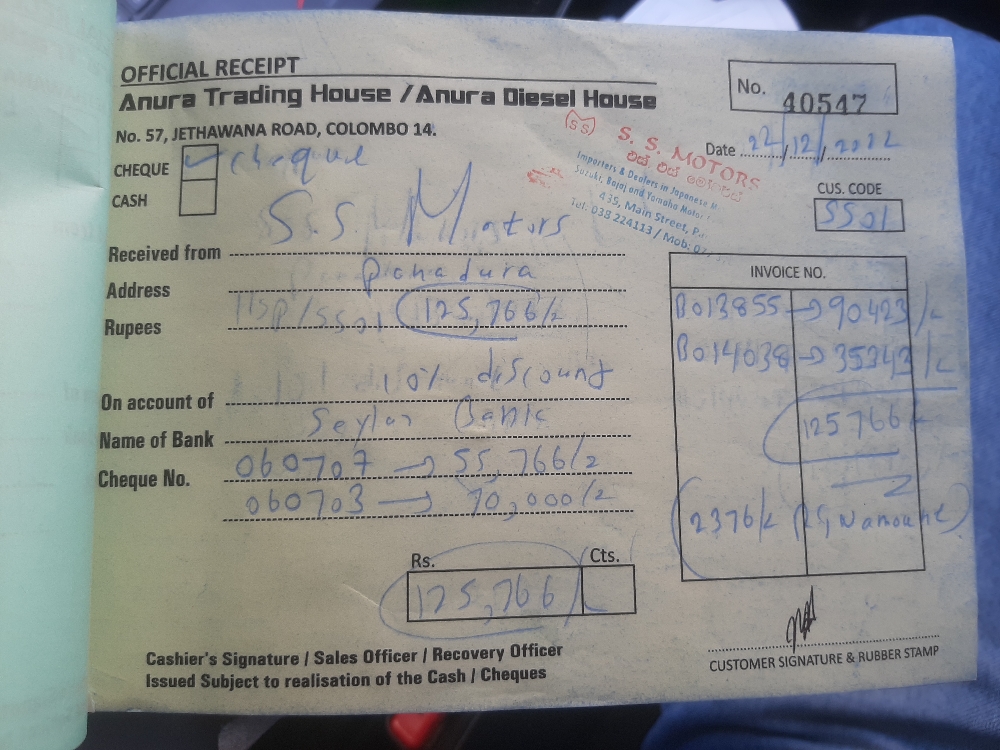 OFFICIAL RECEIPT
Anura Trading House / Anura Diesel House
No. 57, JETHAWANA ROAD, COLOMBO 14.
No. 40547
Date 22/12/2022
CHEQUE ✓ cheque
CASH
S. S. MOTORS
එස් එස් මොටර්ස්
Importers & Dealers in Japanese M
Suzuki, Bajaj and Yamaha Motor
435, Main Street, P
Tel: 038 224113 / Mob: 07
CUS. CODE
SS01
Received from S.S Motors
Address
Rupees HSP/SS01 125,766/-
10% discount
On account of
Name of Bank Seylan Bank
Cheque No. 060707 → 55,766/-
060703 → 70,000/-
INVOICE NO.
B013855 → 90423/-
B014038 → 35343/-
125766/-
2376/-
Rs. Cts.
125,766/-
Cashier's Signature / Sales Officer / Recovery Officer
Issued Subject to realisation of the Cash / Cheques
CUSTOMER SIGNATURE & RUBBER STAMP